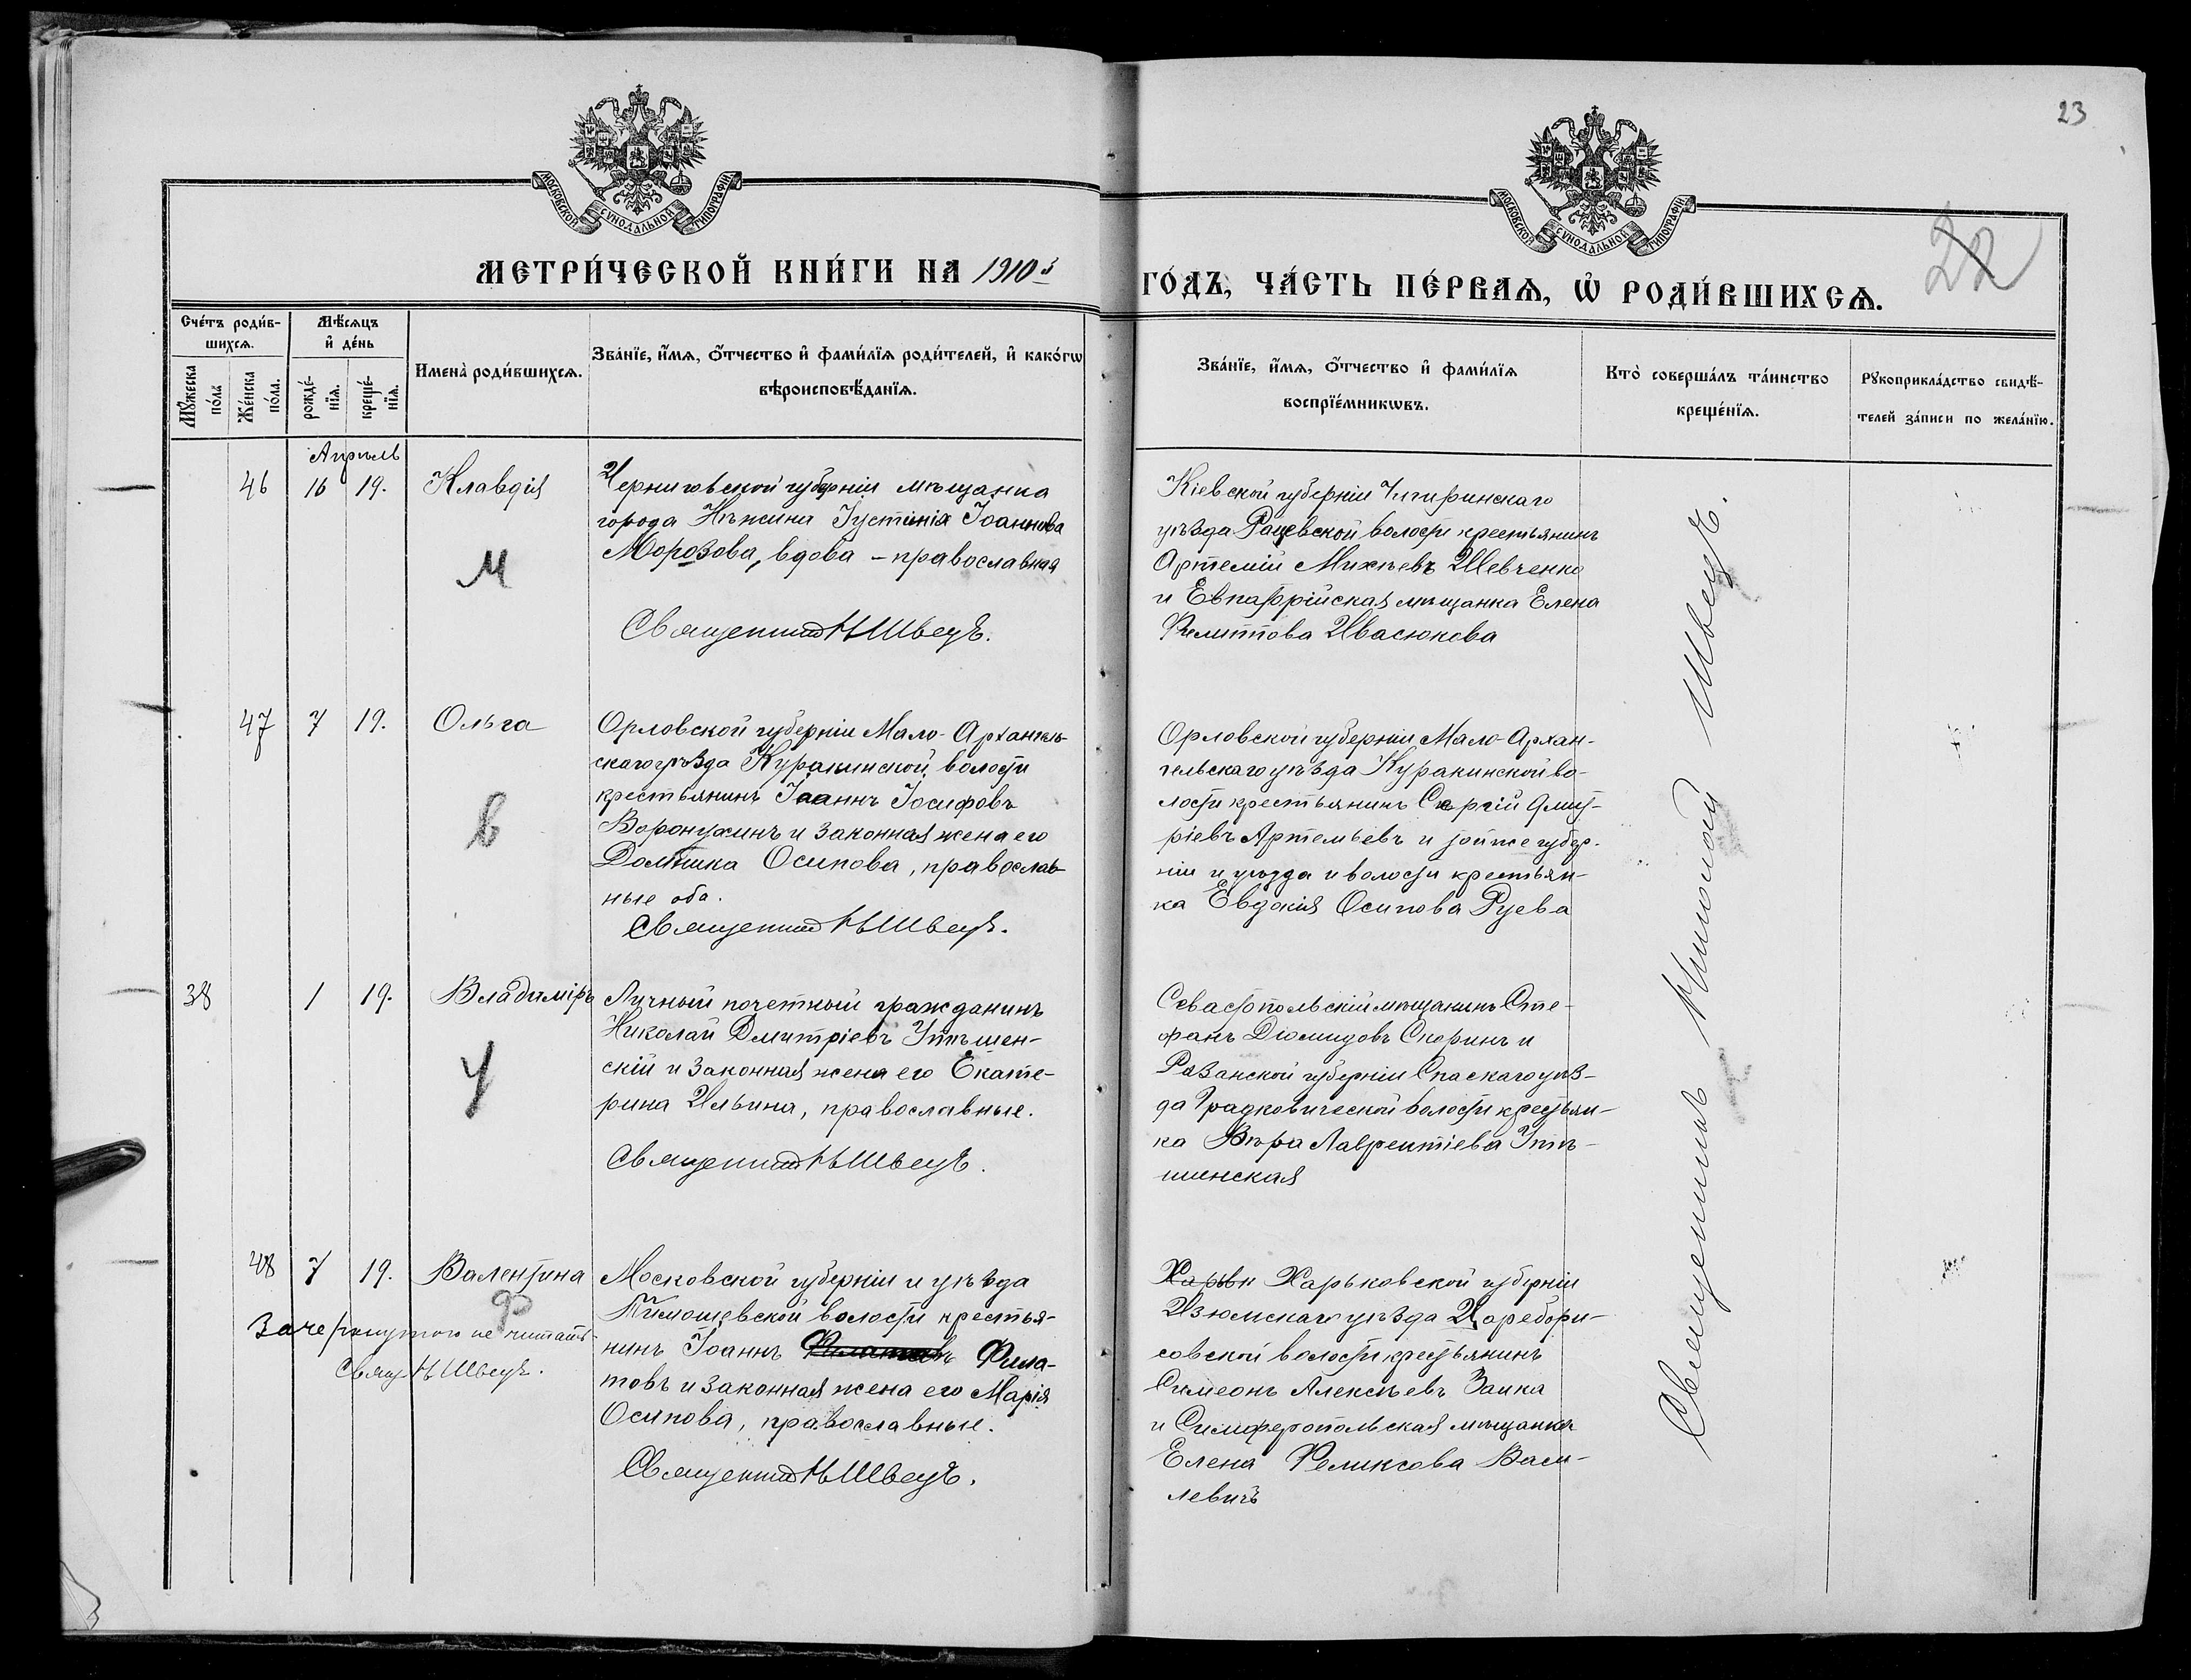 23
22
МОСКОВСКОЙ СѴНОДАЛЬНОЙ ТИПОГРАФІИ
МОСКОВСКОЙ СѴНОДАЛЬНОЙ ТИПОГРАФІИ
МЕТРИ́ЧЕСКОЙ КНИ́ГИ НА 1910й
ГО́ДЪ, ЧА́СТЬ ПЕ́РВАѦ, Ѡ҆ РОДИ́ВШИХСѦ.
Сче́тъ роди́в-
шихсѧ.
Мꙋ́жеска
по́ла
Же́нска
по́ла.
Мѣ́сѧцъ
и҆ де́нь
рожде́-
нїѧ.
креще́-
нїѧ.
Имена̀ роди́вшихсѧ.
Зва́нїе, и҆́мѧ, ѻ҆́тчество и҆ фами́лїѧ роди́телей, и҆ како́гѡ
вѣроисповѣ́данїѧ.
Зва́нїе, и҆́мѧ, ѻ҆́тчество и҆ фами́лїѧ
воспрїе́мникѡвъ.
Кто̀ соверша́лъ та́инство
креще́нїѧ.
Рꙋкоприкла́дство свидѣ́-
телей за́писи по жела́нїю.
Апрѣль
46 16 19. Клавдія
М
Черниговской губерніи мѣщанка
города Нѣжина Іустинія Іоаннова
Морозова, вдова – православная
Священникъ Н Швецъ.
Кіевской губерніи Чигиринскаго
уѣзда Рацевской волости крестьянинъ
Артемій Михѣевъ Шевченко
и Евпаторійская мѣщанка Елена
Ивасюкова
47 7 19. Ольга
В
Орловской губерніи Мало-Архангель-
скаго уѣзда Куракинской волости
крестьянинъ Іоаннъ Іосифовъ
Воронухинъ и законная жена его
Домника Осипова, православ-
ные оба.
Священникъ Н Швецъ.
Орловской губерніи Мало-Архан-
гельскаго уѣзда Куракинской во-
лости крестьянинъ Сергій Дмит-
ріевъ Артемьевъ и той же губер-
ніи и уѣзда и волости крестьян-
ка Евдокія Осипова Руева
38 1 19. Владиміръ
У
Личный почетный гражданинъ
Николай Дмитріевъ Утѣшен-
скій и законная жена его Екате-
рина Ильина, православные.
Священникъ Н Швецъ.
Севастопольскій мѣщанинъ Сте-
фанъ Діомидовъ Споринъ и
Рязанской губерніи Спаскаго уѣз-
да волости крестьян-
ка Вѣра Лаврентіева Утѣ-
шенская
48 7 19. Валентина
Ф
Зачеркнутого не читать
Свящ. Н Швецъ.
Московской губерніи и уѣзда
Тимошевской волости крестья-
нинъ Іоаннъ Филатовъ Фила-
товъ и законная жена его Марія
Осипова, православные.
Священникъ Н Швецъ.
Харьк Харьковской губерніи
Изюмскаго уѣзда Царебори-
совской волости крестьянинъ
Симеонъ Алексѣевъ Заика
и Симферопольская мѣщанка
Елена Феликсова Васи-
левичъ
Священникъ Николай Швецъ.